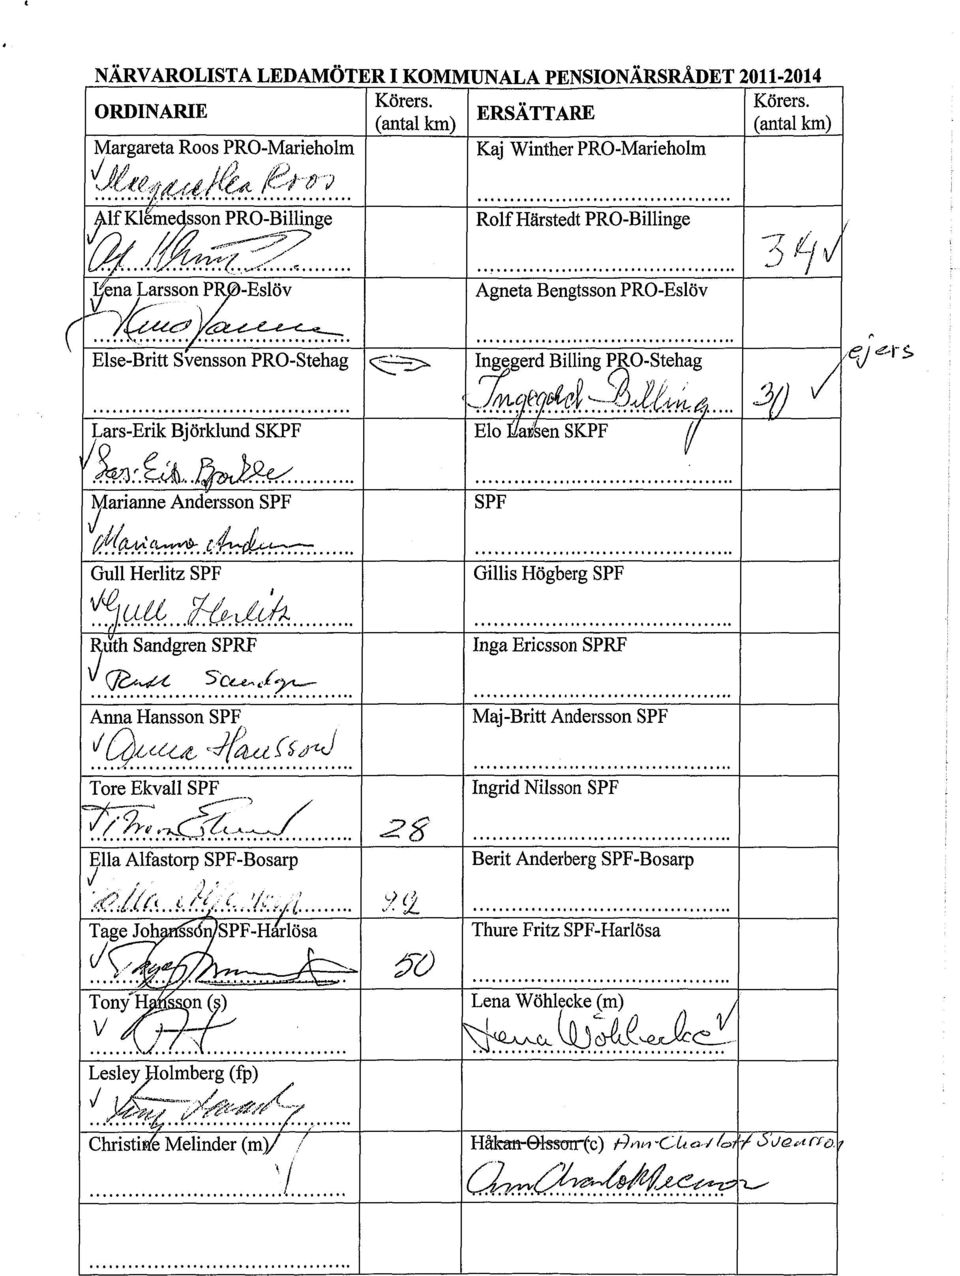 NÄRVAROLISTA LEDAMÖTER I KOMMUNALA PENSIONÄRSRÅDET 2011-2014
ORDINARIE Körers. (antal km) ERSÄTTARE Körers. (antal km)
Margareta Roos PRO-Marieholm Kaj Winther PRO-Marieholm
√ Margaretha Roos
Alf Klemedsson PRO-Billinge Rolf Härstedt PRO-Billinge
√ 34 √
Lena Larsson PRO-Eslöv Agneta Bengtsson PRO-Eslöv
√ Lena Larsson
Else-Britt Svensson PRO-Stehag Ingegerd Billing PRO-Stehag ejers
Ingegerd Billing 30 √
Lars-Erik Björklund SKPF Elo Larsen SKPF
√
Marianne Andersson SPF SPF
√ Marianne
Gull Herlitz SPF Gillis Högberg SPF
√ Gull Herlitz
Ruth Sandgren SPRF Inga Ericsson SPRF
√ Ruth Sandgren
Anna Hansson SPF Maj-Britt Andersson SPF
√ Anna Hansson
Tore Ekvall SPF Ingrid Nilsson SPF
√ 28
Ella Alfastorp SPF-Bosarp Berit Anderberg SPF-Bosarp
√ Ella Alfastorp
Tage Johansson SPF-Harlösa Thure Fritz SPF-Harlösa
√ Tage 50
Tony Hansson (s) Lena Wöhlecke (m)
√ Lena Wöhlecke √
Lesley Holmberg (fp)
√
Christine Melinder (m) Håkan Olsson (c) Ann-Charlott Svensson
√